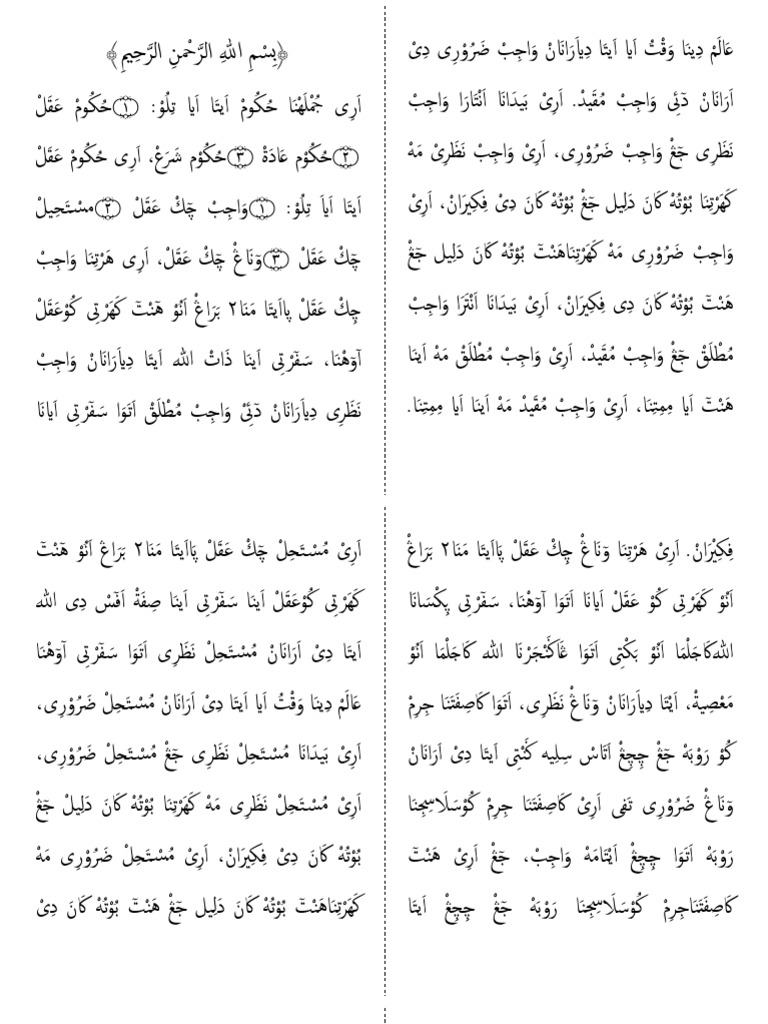 ﴿بِسْمِ اللهِ الرَّحْمنِ الرَّحِيمِ﴾
اَرِى جُمْلَهْنَا حُكُومْ اَيتَا اَيا تِلُوْ: ۝١حُكُومْ عَقَلْ
۝٢حُكُوْم عَادَةْ ۝٣حُكُوْم شَرَعْ، اَرِى حُكُومْ عَقَلْ
اَيتَا اَياَ تِلُوْ: ۝١وَاجِبْ چَك عَقَلْ ۝٢مسْتَحِيلْ
چَك عَقَلْ ۝٣وَناَڠْ چَك عَقَلْ، اَرِى هَرْتِنَا وَاجِبْ
چِكْ عَقَلْ پااَيتَا مَنَا٢ بَرَاڠْ اَنُوْ هَنْتَ كَهَرْتِى كُوْعَقَلْ
اَوَهْنَا، سَفَرْتِى اَينَا ذَاتْ الله اَيتَا دِياَرَانَانْ وَاجِبْ
نَظَرِى دِياَرَانَانْ دَئِىْ وَاجِبْ مُطْلَقْ اَتَوَا سَفَرْتِى اَيَانَا
عَالَمْ دِينَا وَقْتُ اَيا اَيتَا دِياَرَانَانْ وَاجِبْ ضَرُوْرِى دِىْ
اَرَانَانْ دَئِى وَاجِبْ مُقَيدْ. اَرِىْ بَيدَانَا اَنْتَارَا وَاجِبْ
نَظَرِى جَڠْ وَاجِبْ ضَرُوْرِى، اَرِىْ وَاجِبْ نَظَرِىْ مَهْ
كَهَرْتِنَا بُوْتُهْ كَانَ دَلِيل جَڠْ بُوْتُهْ كَانَ دِىْ فِكِيرَانْ، اَرِىْ
وَاجِبْ ضَرُوْرِى مَهْ كَهَرْتِنَاهَنْتَ بُوْتُهْ كَانَ دَلِيل جَڠْ
هَنْتَ بُوْتُهْ كَانَ دِى فِكِيرَانْ، اَرِىْ بَيدَانَا اَنْتَرَا وَاجِبْ
مُطْلَقْ جَڠْ وَاجِبْ مُقَيدْ، اَرِىْ وَاجِبْ مُطْلَقْ مَهْ اَينَا
هَنْتَ اَيا مِمِتِنَا، اَرِىْ وَاجِبْ مُقَيدْ مَهْ اَينَا اَيا مِمِتِنَا.
اَرِىْ مُسْتَحِلْ چَك عَقَلْ پَااَيتَا مَنَا٢ بَرَاڠْ اَنُوْ هَنْتَ
كَهَرْتِى كُوْعَقَلْ اَينَا سَفَرْتِى اَينَا صِفَةْ اَفَسْ دِى الله
اَيتَا دِىْ اَرَانَانْ مُسْتَحِلْ نَظَرِى اَتَوَا سَفَرْتِى اَوَهْنَا
عَالَمْ دِينَا وَقْتُ اَيا اَيتَا دِىْ اَرَانَانْ مُسْتَحِلْ ضَرُوْرِى،
اَرِىْ بَيدَانَا مُسْتَحِلْ نَظَرِى جَڠْ مُسْتَحِلْ ضَرُوْرِى،
اَرِىْ مُسْتَحِلْ نَظَرِى مَهْ كَهَرْتِنَا بُوْتُهْ كَانَ دَلِيلْ جَڠْ
بُوْتُهْ كَانَ دِىْ فِكِيرَانْ، اَرِىْ مُسْتَحِلْ ضَرُوْرِى مَهْ
كَهَرْتِنَاهَنْتَ بُوْتُهْ كَانَ دَلِيل جَڠْ هَنْتَ بُوْتُهْ كَانَ دِىْ
فِكِيْرَانْ. اَرِىْ هَرْتِنَا وَناَڠْ چِكْ عَقَلْ پَااَيتَا مَنَا٢ بَرَاڠْ
اَنُوْ كَهَرْتِى كُوْ عَقَلْ اَيانَا اَتَوَا اَوَهْنَا، سَفَرْتِى پِكْسَانَا
الله كاَجَلْمَا اَنُوْ بَكْتِى اَتَوَا ڠَاكَنْجَرْنَا الله كاَجَلْمَا اَنُوْ
مَعْصِيةْ، اَيْتَا دِياَرَانَانْ وَناَڠْ نَظَرِى، اَتَوَا كاَصِفَتَنَا جِرِمْ
كُوْ رَوْبَهْ جَڠْ چِچِڠْ اَتَاسْ سِلِيه كَنْتِى اَيتَا دِىْ اَرَانَانْ
وَناَڠْ ضَرُوْرِى تَفِى اَرِىْ كاَصِفَتَنَا جِرِمْ كُوْسَلَاسِجِنَا
رَوْبَهْ اَتَوَا چِچِڠْ اَيْتَامَهْ وَاجِبْ، جَڠْ اَرِىْ هَنْتَ
كاَصِفَتَنَاجِرِمْ كُوْسَلَاسِجِنَا رَوْبَهْ جَڠْ چِچِڠْ اَيتَا